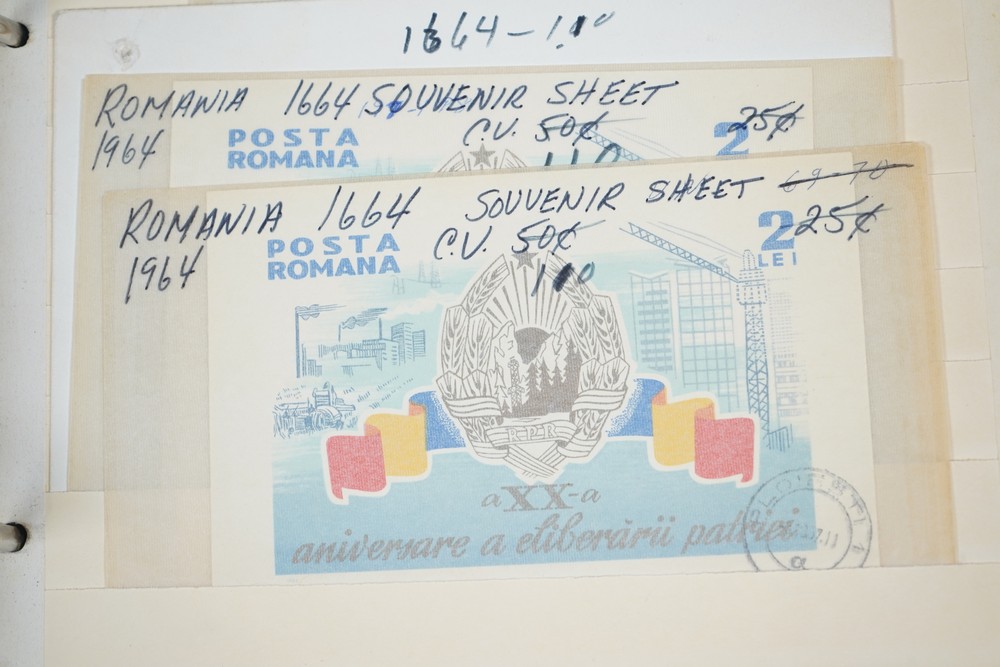 1664 – 1.10
ROMANIA 1664 SOUVENIR SHEET
1964 C.V. 50¢ 25¢
POSTA
ROMANA
2
1.10
ROMANIA 1664 SOUVENIR SHEET 69-70
1964 C.V. 50¢ 25¢
POSTA
ROMANA
2
LEI
1.10
RPR
a XX-a
aniversare a eliberării patriei
PLOIEȘTI 1
a